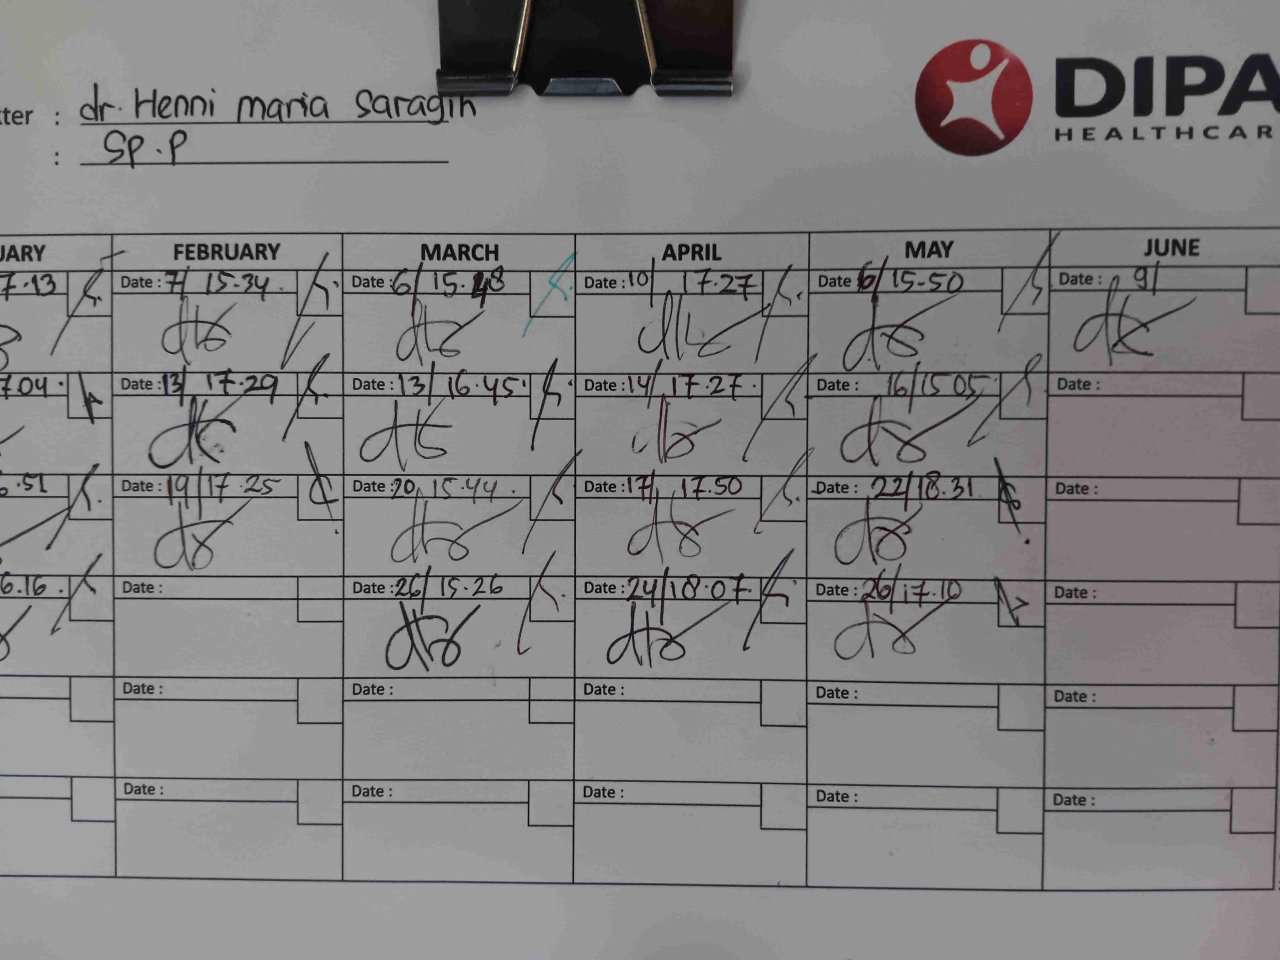 tter : dr. Henni maria Saragih
: Sp.P
DIPA
HEALTHCAR
UARY FEBRUARY MARCH APRIL MAY JUNE
7.13 Date : 7/ 15.34 Date : 6/ 15.48 Date : 10/ 17.27 Date : 6/15-50 Date : 9/
7.04 Date : 13/ 17.29 Date : 13/ 16.45 Date : 14/ 17.27 Date : 16/15.05 Date :
6.51 Date : 19/17.25 Date : 20/ 15.44 Date : 17/ 17.50 Date : 22/18.31 Date :
6.16 Date : Date : 26/ 15.26 Date : 24/18.07 Date : 26/17.10 Date :
Date : Date : Date : Date : Date :
Date : Date : Date : Date : Date :